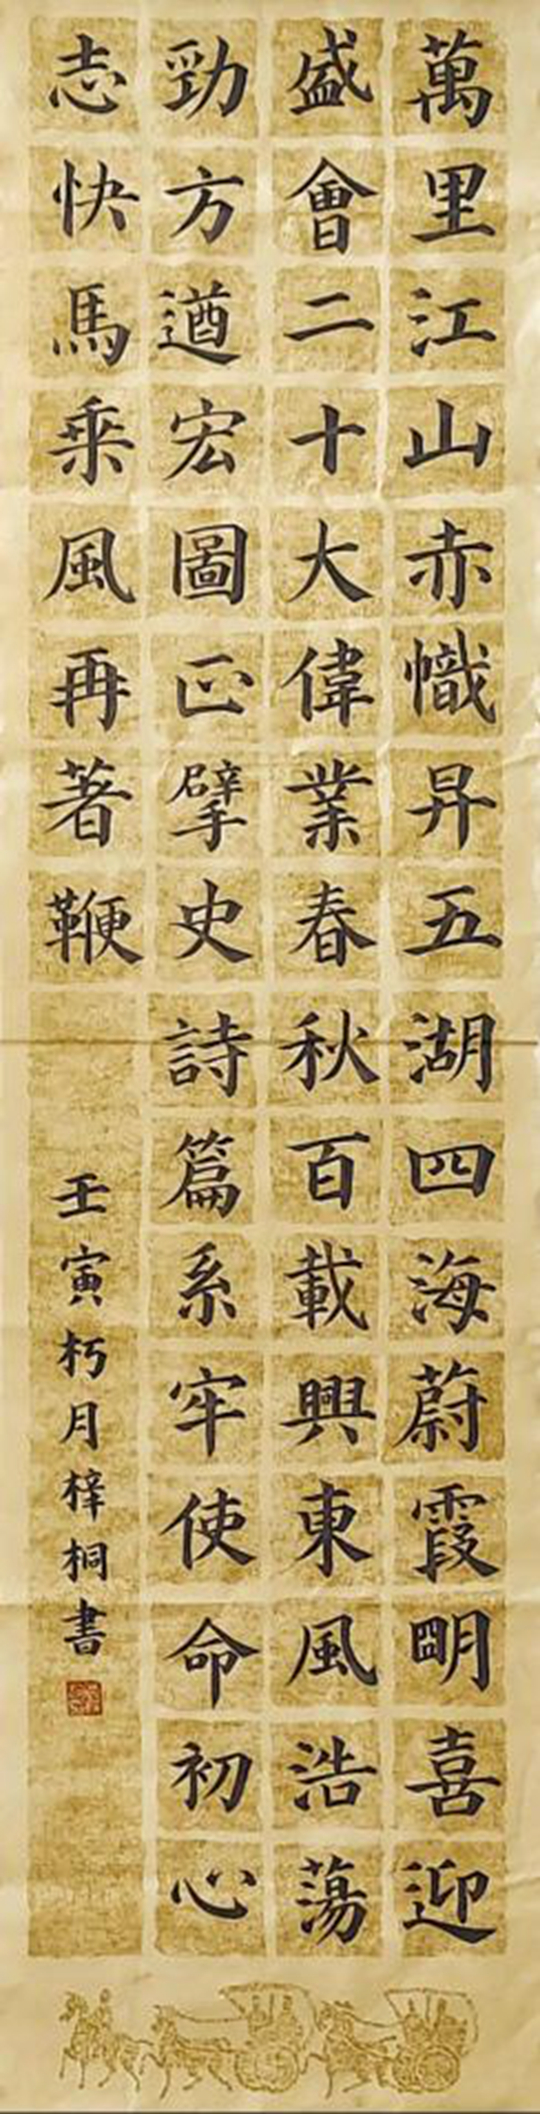 萬里江山赤幟昇五湖四海蔚霞朙喜迎
盛會二十大偉業春秋百載興東風浩蕩
勁方遒宏圖正擘史詩篇系牢使命初心
志快馬乘風再著鞭
壬寅朽月梓桐書